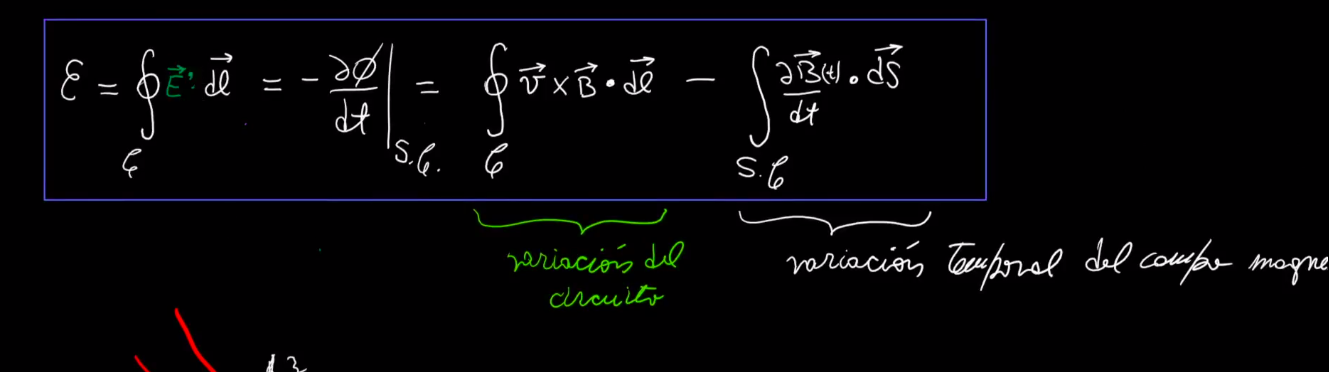 ℰ = ∮_𝒞 E⃗' · dl⃗ = - ∂ϕ/dt |_{S.𝒞.} = ∮_𝒞 v⃗ × B⃗ · dl⃗ - ∫_{S.𝒞} ∂B⃗(t)/dt · dS⃗
variación del
circuito
variación temporal del campo magne